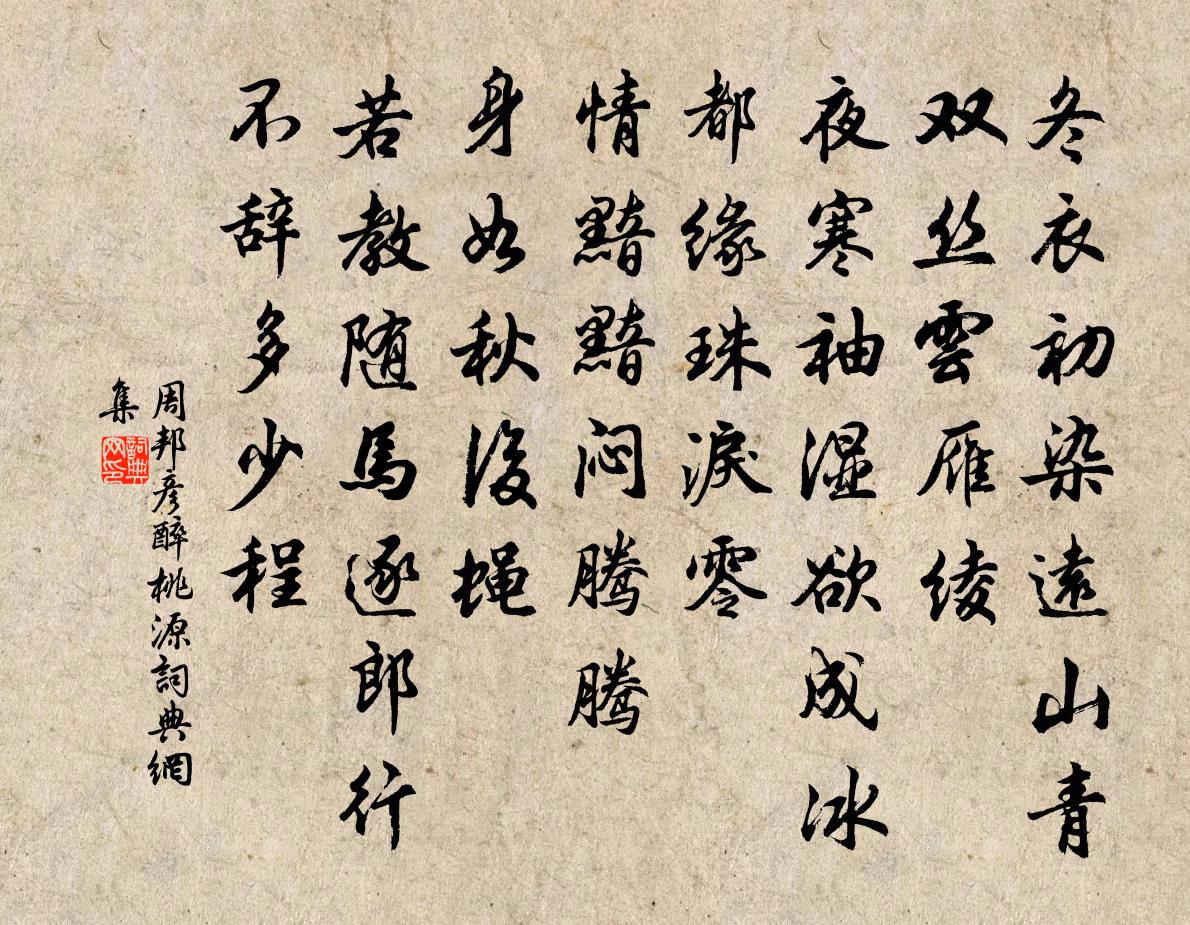 冬衣初染遠山青
双丝雲雁绫
夜寒袖湿欲成冰
都缘珠淚零
情黯黯闷腾腾
身如秋後蝇
若教随馬逐郎行
不辞多少程
周邦彦醉桃源詞典網
集
詞典網印